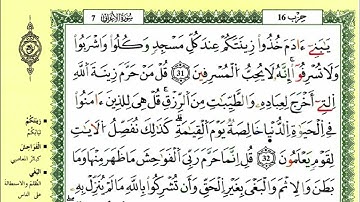 7 سُورَةُ الْأَعْرَافِ حِزْب 16
يَٰبَنِےٓ ءَادَمَ خُذُواْ زِينَتَكُمْ عِندَ كُلِّ مَسْجِدٍ وَكُلُواْ وَاشْرَبُواْ
وَلَا تُسْرِفُوٓاْ إِنَّهُۥ لَا يُحِبُّ الْمُسْرِفِينَ 31 قُلْ مَنْ حَرَّمَ زِينَةَ اللَّهِ
الَّتِےٓ أَخْرَجَ لِعِبَادِهِۦ وَالطَّيِّبَٰتِ مِنَ الرِّزْقِ قُلْ هِيَ لِلَّذِينَ ءَامَنُواْ
فِے الْحَيَوٰةِ الدُّنْيَا خَالِصَةً يَوْمَ الْقِيَٰمَةِ كَذَٰلِكَ نُفَصِّلُ الْأَيَٰتِ
لِقَوْمٍ يَعْلَمُونَ 32 قُلْ إِنَّمَا حَرَّمَ رَبِّيَ الْفَوَٰحِشَ مَا ظَهَرَ مِنْهَا وَمَا
بَطَنَ وَالْإِثْمَ وَالْبَغْيَ بِغَيْرِ الْحَقِّ وَأَن تُشْرِكُواْ بِاللَّهِ مَا لَمْ يُنَزِّلْ بِهِۦ
زِينَتَكُمْ
ثيابكم
الْفَوَاحِشَ
كبائر المعاصي
الْبَغْيَ
الظلم والاستطالة
على الناس